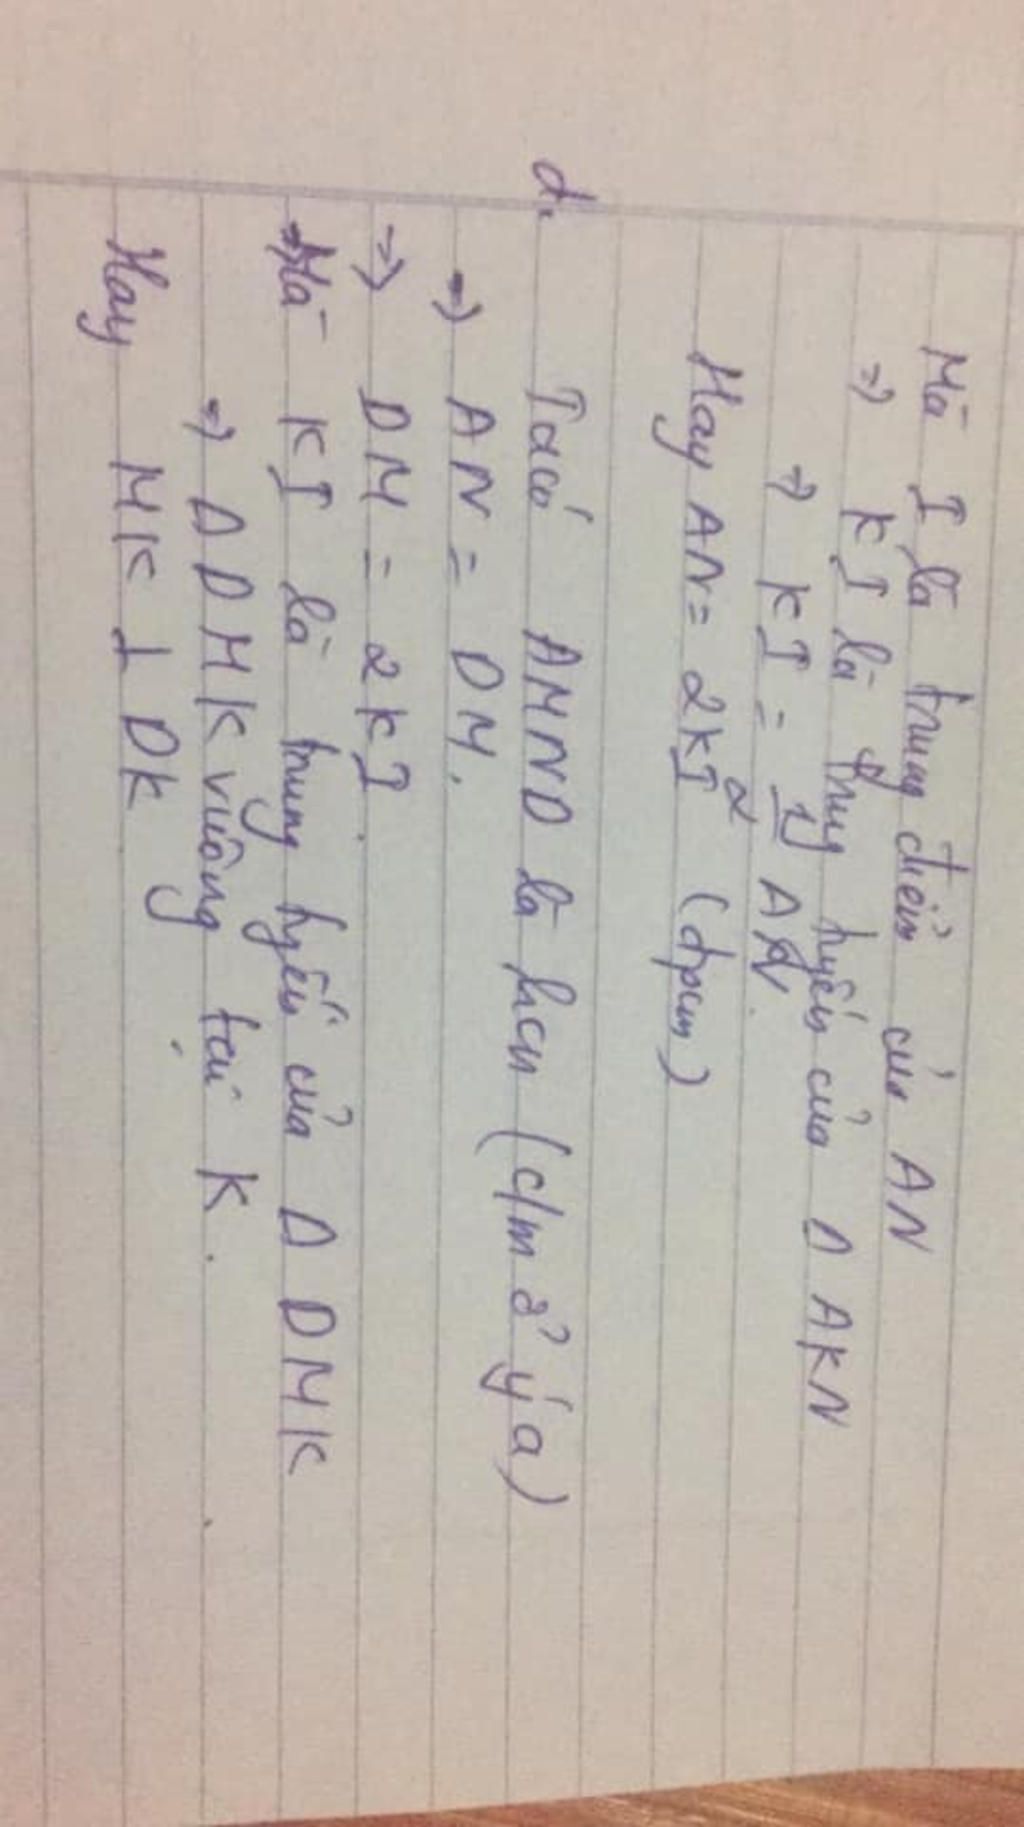 Mà I là trung điểm của AN
⇒ KI là trung tuyến của Δ AKN
⇒ KI = 1/2 AN.
Hay AN = 2KI (đpcm)
d. Ta có AMND là hcn (c/m ở ý a)
⇒ AN = DM.
⇒ DM = 2KI.
Mà KI là trung tuyến của Δ DMK
⇒ Δ DMK vuông tại K.
Hay MK ⊥ DK